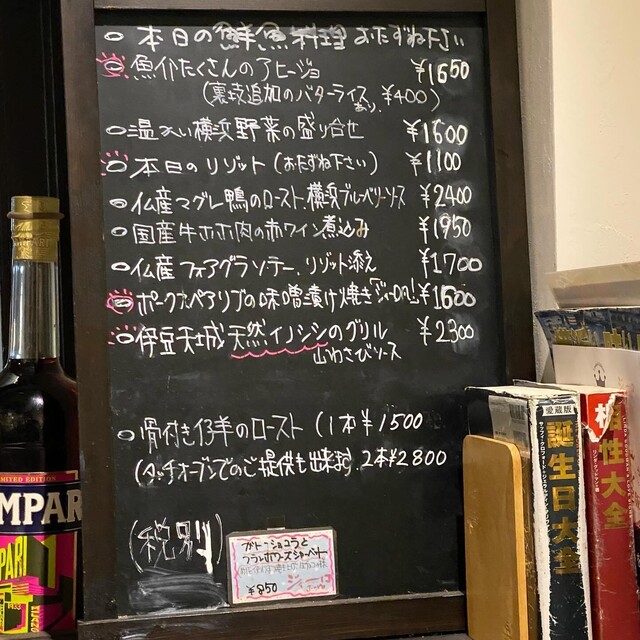 本日の鮮魚料理 おたずね下さい
魚介たくさんのアヒージョ ¥1650
(裏技追加のバターライスあり。¥400)
温かい横浜野菜の盛り合せ ¥1600
本日のリゾット (おたずね下さい) ¥1100
仏産マグレ鴨のロースト、横浜ブルーベリーソース ¥2400
国産牛ホホ肉の赤ワイン煮込み ¥1950
仏産フォアグラソテー、リゾット添え ¥1700
ポークスペアリブの味噌漬け焼き ¥1600
伊豆天城天然イノシシのグリル ¥2300
山わさびソース
骨付き仔羊のロースト (1本¥1500
(ダッチオーブンでのご提供も出来ます) 2本¥2800
(税別)
ガトーショコラと
フランボワーズシャーベット
¥850
LIMITED EDITION
MPAR
PARI
愛蔵版
誕生日大全
相性大全